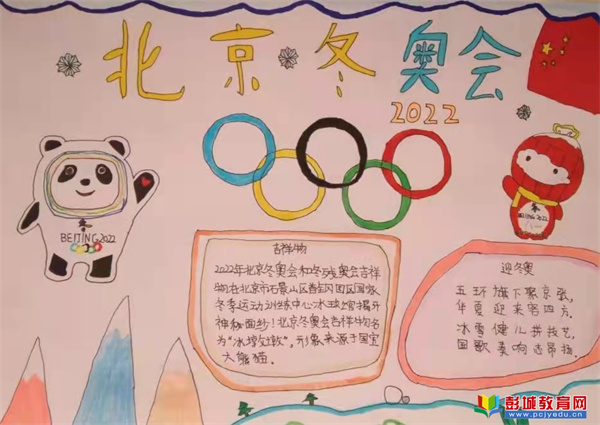 北京冬奥会
2022
BEIJING 2022
BEIJING 2022
吉祥物
2022年北京冬奥会和冬残奥会吉祥
物在北京市石景山区首钢园区国家
冬季运动训练中心冰球馆揭开
神秘面纱！北京冬奥会吉祥物名
为“冰墩墩”，形象来源于国宝
大熊猫.
迎冬奥
五环旗下聚京张，
华夏迎来客四方，
冰雪健儿拼技艺，
国歌奏响志昂扬.
彭城教育网
www.pcjyedu.com